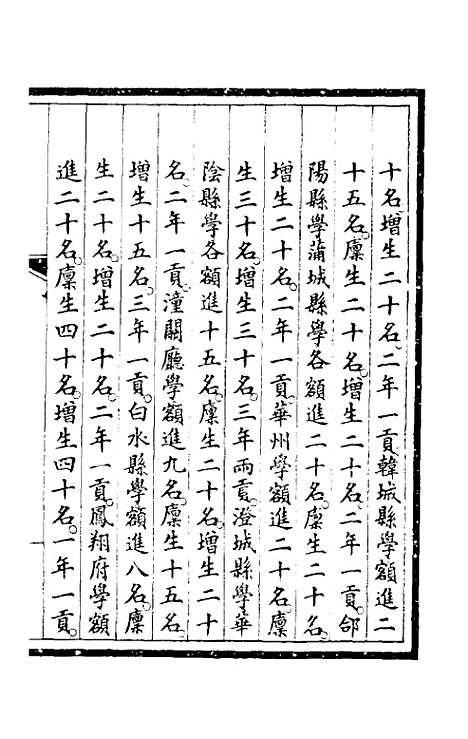 十名增生二十名二年一貢韓城縣學額進二
十五名廩生二十名增生二十名二年一貢郃
陽縣學蒲城縣學各額進二十名廩生二十名
增生二十名二年一貢華州學額進二十名廩
生三十名增生三十名三年兩貢澄城縣學華
陰縣學各額進十五名廩生二十名增生二十
名二年一貢潼關廳學額進九名廩生十五名
增生十五名三年一貢白水縣學額進八名廩
生二十名增生二十名二年一貢鳳翔府學額
進二十名廩生四十名增生四十名一年一貢